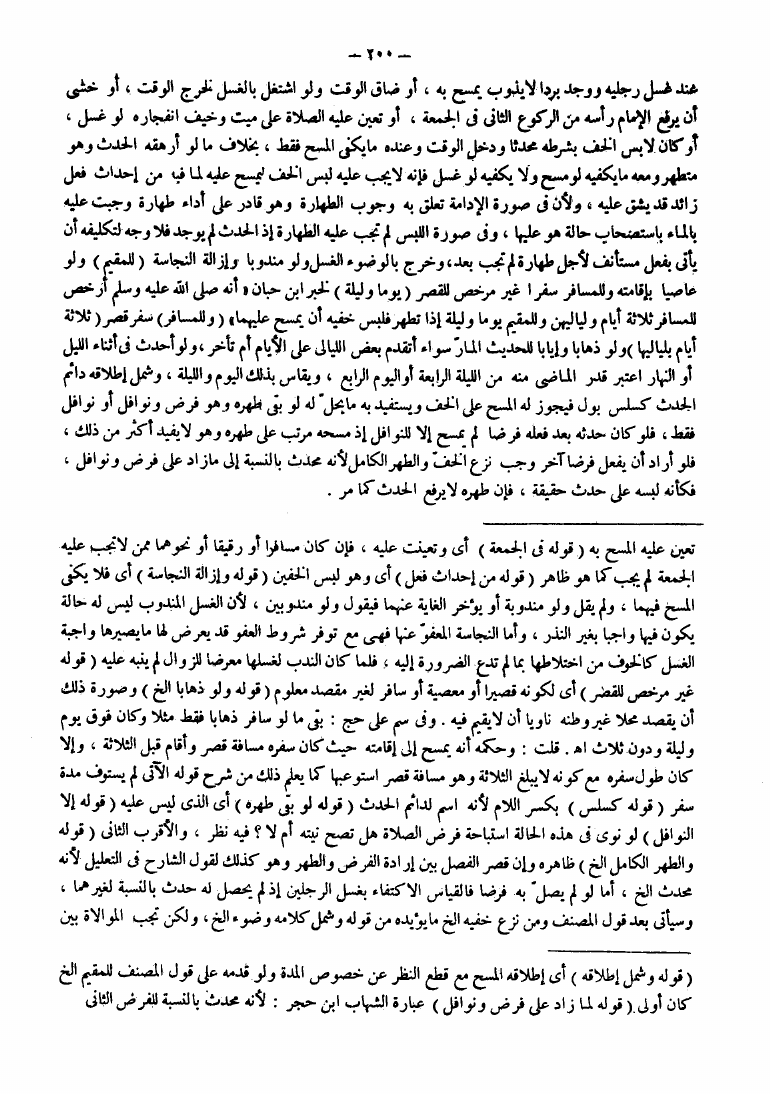 — ٢٠٠ —
عند غسل رجليه ووجد بردا لايذوب يمسح به ، أو ضاق الوقت ولو اشتغل بالغسل لخرج الوقت ، أو خشى
أن يرفع الإمام رأسه من الركوع الثانى فى الجمعة ، أو تعين عليه الصلاة على ميت وخيف انفجاره لو غسل ،
أو كان لابس الخف بشرطه محدثا ودخل الوقت وعنده مايكفى المسح فقط ، بخلاف ما لو أرهقه الحدث وهو
متطهر ومعه مايكفيه لو مسح ولا يكفيه لو غسل فإنه لايجب عليه لبس الخف ليمسح عليه لما فيه من إحداث فعل
زائد قد يشق عليه ، ولأن فى صورة الإدامة تعلق به وجوب الطهارة وهو قادر على أداء طهارة وجبت عليه
بالماء باستصحاب حالة هو عليها ، وفى صورة اللبس لم تجب عليه الطهارة إذ الحدث لم يوجد فلا وجه لتكليفه أن
يأتى بفعل مستأنف لأجل طهارة لم تجب بعد، وخرج بالوضوء الغسل ولو مندوبا وإزالة النجاسة ( للمقيم ) ولو
عاصيا بإقامته وللمسافر سفرا غير مرخص للقصر ( يوما وليلة ) لخبر ابن حبان « أنه صلى الله عليه وسلم أرخص
للمسافر ثلاثة أيام ولياليهن وللمقيم يوما وليلة إذا تطهر فلبس خفيه أن يمسح عليهما» ( وللمسافر ) سفر قصر ( ثلاثة
أيام بلياليها ) ولو ذهابا وإيابا للحديث المارّ سواء أتقدم بعض الليالى على الأيام أم تأخر ، ولو أحدث فى أثناء الليل
أو النهار اعتبر قدر الماضى منه من الليلة الرابعة أو اليوم الرابع ، ويقاس بذلك اليوم والليلة ، وشمل إطلاقه دائم
الحدث كسلس بول فيجوز له المسح على الخف ويستفيد به مايحلّ له لو بقى طهره وهو فرض ونوافل أو نوافل
فقط ، فلو كان حدثه بعد فعله فرضا لم يمسح إلا للنوافل إذ مسحه مرتب على طهره وهو لايفيد أكثر من ذلك ،
فلو أراد أن يفعل فرضا آخر وجب نزع الخفّ والطهر الكامل لأنه محدث بالنسبة إلى مازاد على فرض ونوافل ،
فكأنه لبسه على حدث حقيقة ، فإن طهره لايرفع الحدث كما مر .
تعين عليه المسح به ( قوله فى الجمعة ) أى وتعينت عليه ، فإن كان مسافرا أو رقيقا أو نحوهما ممن لاتجب عليه
الجمعة لم يجب كما هو ظاهر ( قوله من إحداث فعل ) أى وهو لبس الخفين ( قوله وإزالة النجاسة ) أى فلا يكفى
المسح فيهما ، ولم يقل ولو مندوبة أو يؤخر الغاية عنهما فيقول ولو مندوبين ، لأن الغسل المندوب ليس له حالة
يكون فيها واجبا بغير النذر ، وأما النجاسة المعفوّ عنها فهى مع توفر شروط العفو قد يعرض لها مايصيرها واجبة
الغسل كالخوف من اختلاطها بما لم تدع الضرورة إليه ، فلما كان الندب لغسلها معرضا للزوال لم ينبه عليه ( قوله
غير مرخص للقصر ) أى لكونه قصيرا أو معصية أو سافر لغير مقصد معلوم ( قوله ولو ذهابا الخ ) وصورة ذلك
أن يقصد محلا غير وطنه ناويا أن لايقيم فيه . وفى سم على حج : بقى ما لو سافر ذهابا فقط مثلا وكان فوق يوم
وليلة ودون ثلاث اهـ . قلت : وحكمه أنه يمسح إلى إقامته حيث كان سفره مسافة قصر وأقام قبل الثلاثة ، وإلا
كان طول سفره مع كونه لايبلغ الثلاثة وهو مسافة قصر استوعبها كما يعلم ذلك من شرح قوله الآتى لم يستوف مدة
سفر ( قوله كسلس ) بكسر اللام لأنه اسم لدائم الحدث ( قوله لو بقى طهره ) أى الذى لبس عليه ( قوله إلا
النوافل ) لو نوى فى هذه الحالة استباحة فرض الصلاة هل تصح نيته أم لا ؟ فيه نظر ، والأقرب الثانى ( قوله
والطهر الكامل الخ ) ظاهره وإن قصر الفصل بين إرادة الفرض والطهر وهو كذلك لقول الشارح فى التعليل لأنه
محدث الخ ، أما لو لم يصلّ به فرضا فالقياس الاكتفاء بغسل الرجلين إذ لم يحصل له حدث بالنسبة لغيرهما ،
وسيأتى بعد قول المصنف ومن نزع خفيه الخ مايؤيده من قوله وشمل كلامه وضوء الخ ، ولكن تجب الموالاة بين
( قوله وشمل إطلاقه ) أى إطلاقه المسح مع قطع النظر عن خصوص المدة ولو قدمه على قول المصنف للمقيم الخ
كان أولى ( قوله لما زاد على فرض ونوافل ) عبارة الشهاب ابن حجر : لأنه محدث بالنسبة للفرض الثانى